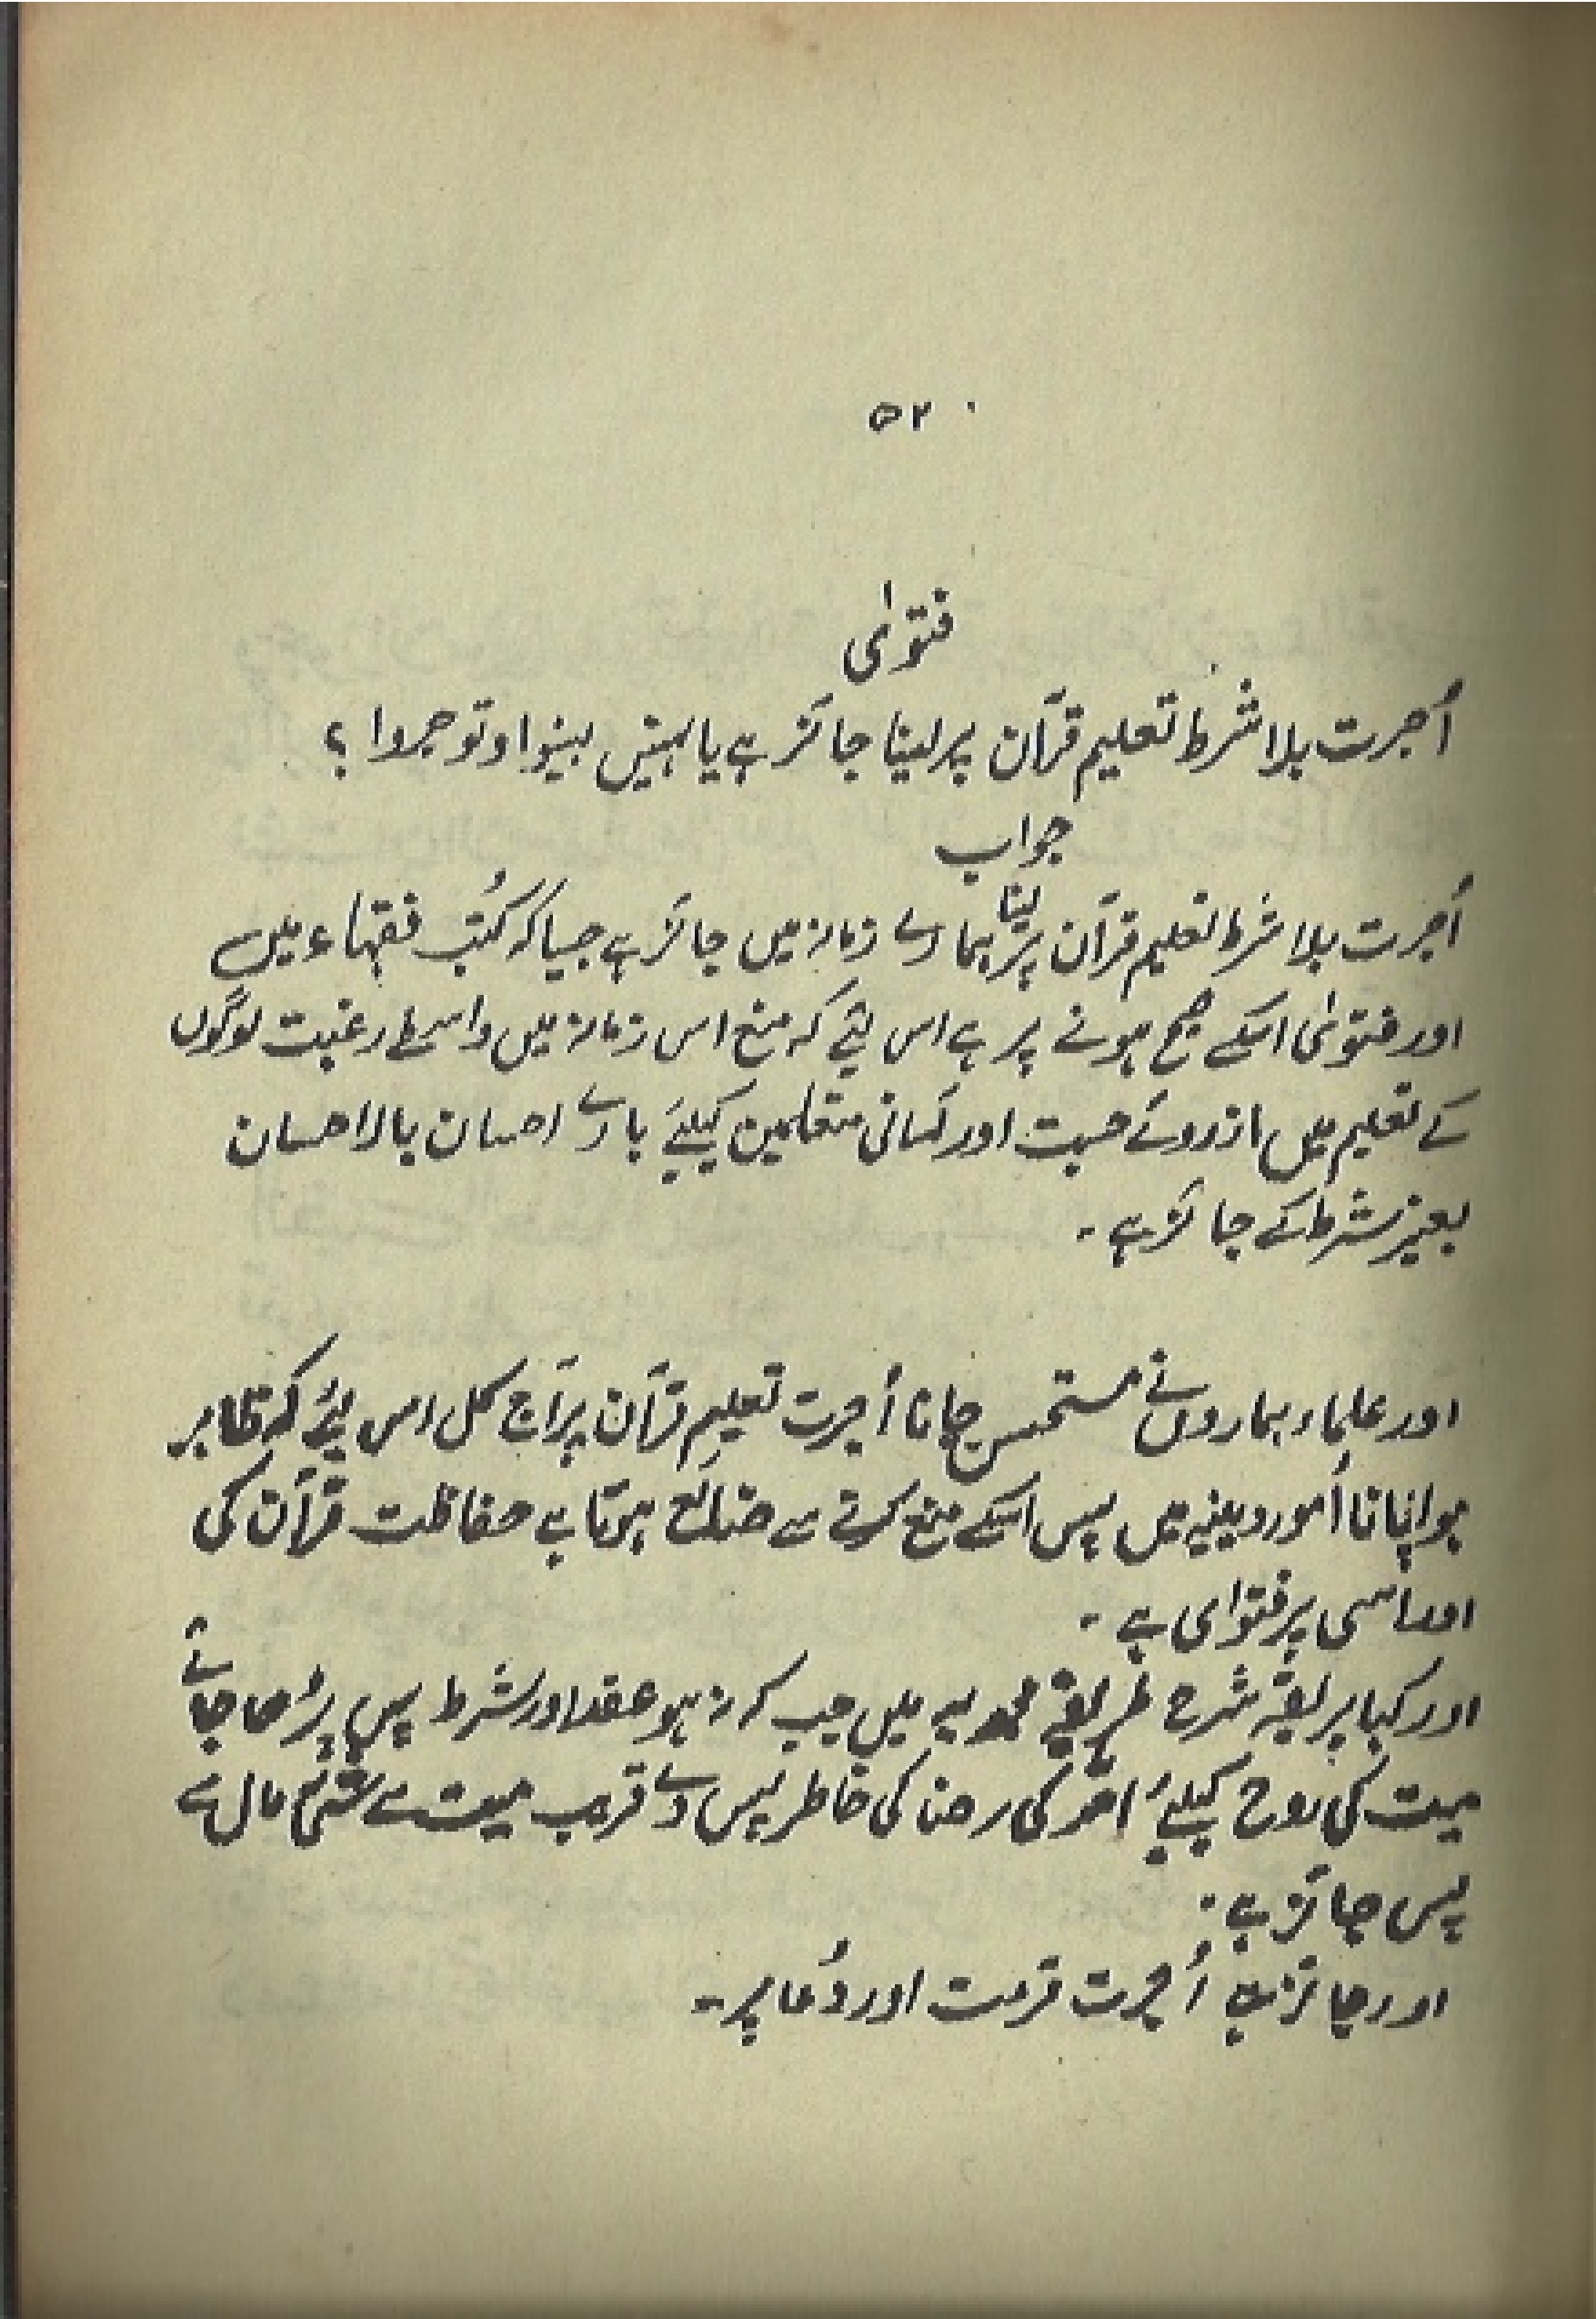 ۵۲۰
فتوٰی
اُجرت بلا شرط تعلیم قرآن پر لینا جائز ہے یا نہیں بینوا و توجروا ؟
جواب
اُجرت بلا شرط تعلیم قرآن پر لینا ہمارے زمانہ میں جائز ہے جیسا کہ کُتب فقہاء میں ہے
اور فتوٰی اسکے صحیح ہونے پر ہے اس لئے کہ منع اس زمانہ میں واسطے رغبت لوگوں
کے تعلیم میں ازروئے حسبت اور آسانی متعلمین کیلئے بارے احسان بالاحسان
بغیر شرط کے جائز ہے ۔
اور علماء ہماروں نے مستحسن جانا اُجرت تعلیم قرآن پر آج کل اس لئے کہ ظاہر
ہوا اُمور دینیہ میں پس اسکے منع کرنے سے ضائع ہوتا ہے حفاظت قرآن کی
اور اسی پر فتوای ہے ۔
اور کہا بریقہ شرح طریقہ میں جب کہ نہ ہو عقد اور شرط پس پڑھا جائے
میت کی روح کیلئے اللہ کی رضا کی خاطر پس دے قریب میت سے مال سے
پس جائز ہے ۔
اور جائز ہے اُجرت قرءت اور دُعا پر ۔